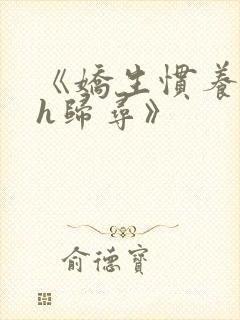 《嬌生慣養
h歸尋》
俞德寶